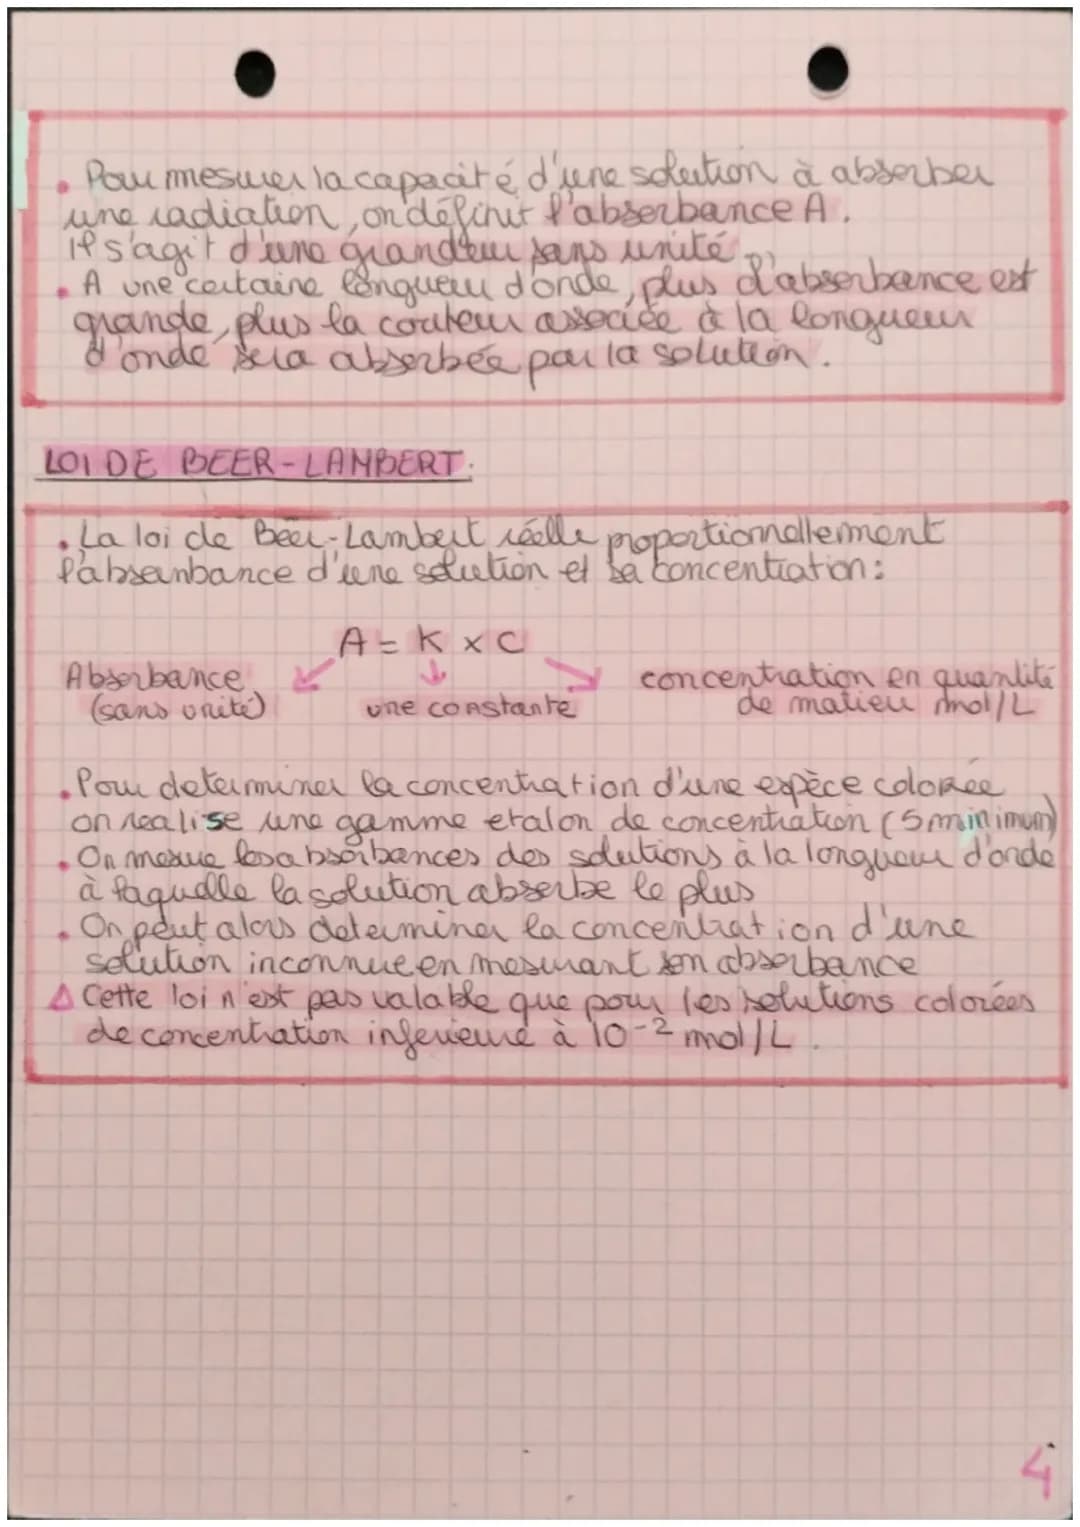 • Pour mesurer la capacité d'une solution à absorber
une radiation, on définit l'absorbance A.
Il s'agit d'une grandeur sans unité.
• A une certaine longueur d'onde, plus l'absorbance est
grande, plus la couleur associée à la longueur
d'onde sera absorbée par la solution.
LOI DE BEER-LAMBERT.
• La loi de Beer-Lambert réelle proportionnellement
l'absanbance d'une solution et sa concentration:
A = K x C
Absorbance
(sans unité)
une constante
concentration en quantité
de matieu mol/L
• Pour determiner la concentration d'une espèce colorée
on realise une gamme etalon de concentration (5 minimum)
• On mesue les absorbances des solutions à la longueur d'onde
à laquelle la solution absorbe le plus
• On peut alors determiner la concentration d'une
solution inconnue en mesurant son absorbance
△ Cette loi n'est pas valable que pour les solutions colorées
de concentration inferieure à 10⁻² mol/L.
4